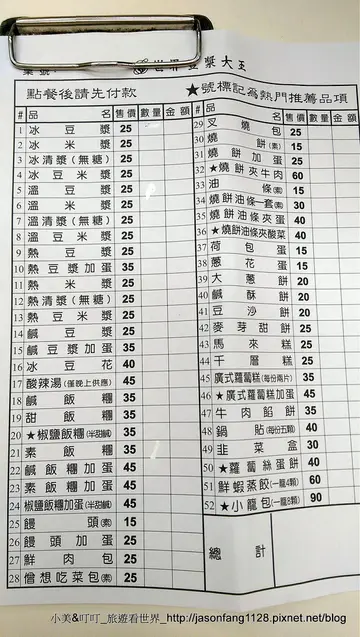 桌號：
世界豆漿大王
點餐後請先付款 ★號標記為熱門推薦品項
# 品名 售價 數量 金額
1 冰豆漿 25
2 冰米漿 25
3 冰清漿(無糖) 25
4 冰豆米漿 25
5 溫豆漿 25
6 溫米漿 25
7 溫清漿(無糖) 25
8 溫豆米漿 25
9 熱豆漿 25
10 熱豆漿加蛋 35
11 熱米漿 25
12 熱清漿(無糖) 25
13 熱豆米漿 25
14 鹹豆漿 25
15 鹹豆漿加蛋 35
16 冰豆花 40
17 酸辣湯(僅晚上供應) 45
18 鹹飯糰 35
19 甜飯糰 35
20 ★椒鹽飯糰(半甜鹹) 35
21 素飯糰 35
22 鹹飯糰加蛋 45
23 素飯糰加蛋 45
24 椒鹽飯糰加蛋(半甜鹹) 45
25 饅頭(素) 15
26 饅頭加蛋 25
27 鮮肉包 25
28 僧想吃菜包(素) 25
# 品名 售價 數量 金額
29 叉燒包 25
30 燒餅(素) 15
31 燒餅加蛋 25
32 ★燒餅夾牛肉 60
33 油條(素) 15
34 燒餅油條一套(素) 30
35 燒餅油條夾蛋 40
36 ★燒餅油條夾酸菜 40
37 荷包蛋 15
38 蔥花蛋 15
39 大蔥餅 20
40 鹹酥餅 20
41 豆沙餅 20
42 麥芽甜餅 25
43 馬來糕 25
44 千層糕 25
45 廣式蘿蔔糕(每份兩片) 35
46 ★廣式蘿蔔糕加蛋 45
47 牛肉餡餅 35
48 鍋貼(每份五顆) 40
49 韭菜盒 30
50 ★蘿蔔絲蛋餅 40
51 鮮蝦蒸餃(一籠4顆) 60
52 ★小籠包(一籠8顆) 90
總計
小美&叮叮_旅遊看世界_http://jasonfang1128.pixnet.net/blog